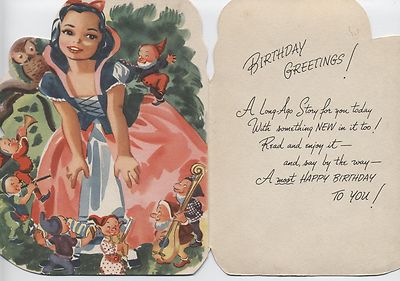 BIRTHDAY
GREETINGS!
A Long-Ago Story for you today
With something NEW in it too!
Read and enjoy it—
and, say by the way—
A most HAPPY BIRTHDAY
TO YOU!